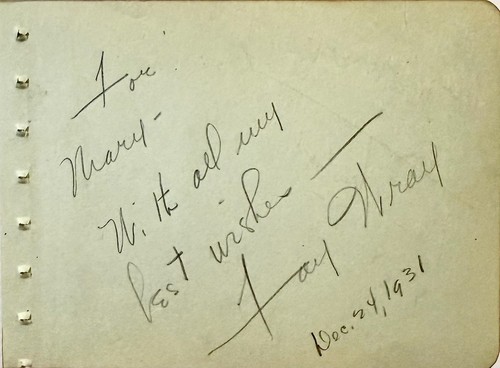 For
Mary-
With all my
best wishes —
Fay Wray
Dec. 24, 1931